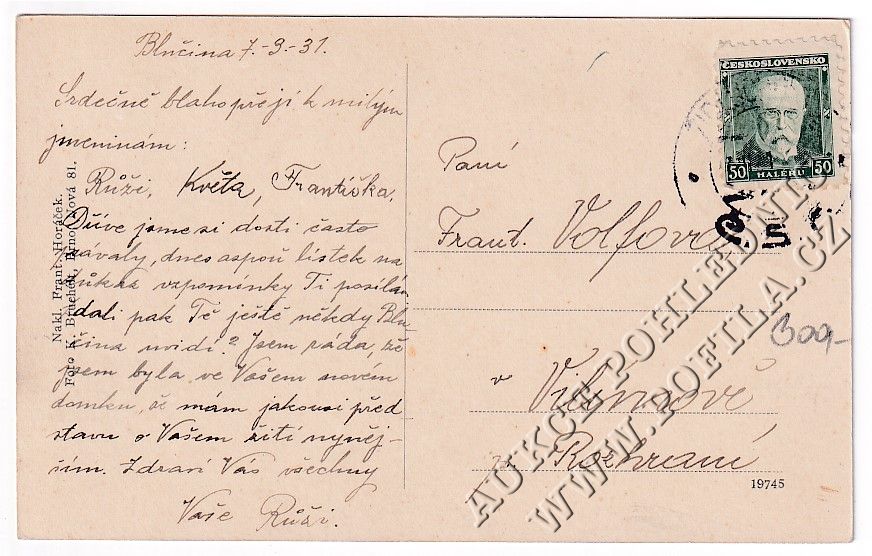 Blučina 7.-9.-31.
Srdečné blahopřejí k milým
jmeninám:
Růži, Květa, Františka.
Dříve jsme si dosti často
psávaly, dnes aspoň lístek na
důkaz vzpomínky Ti posílám
dali pak Tě ještě někdy Blu-
čina uvidí? Jsem ráda, že
jsem byla ve Vašem novém
domku, že mám jakousi před
stavu o Vašem žití nyněj-
ším. Zdraví Vás všechny
Vaše Růži.
Nakl. Frant. Horáček.
Foto K. Bruchelt, Brno, Nová 81.
ČESKOSLOVENSKO
50 HALÉŘŮ 50
Paní
Frant. Volfová
v
Rozhraní
300,-
19745
AUKCE POHLEDNIC
WWW.POFILA.CZ